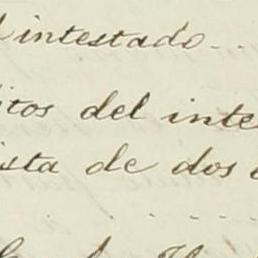 intestado...
itos del inte
ista de dos